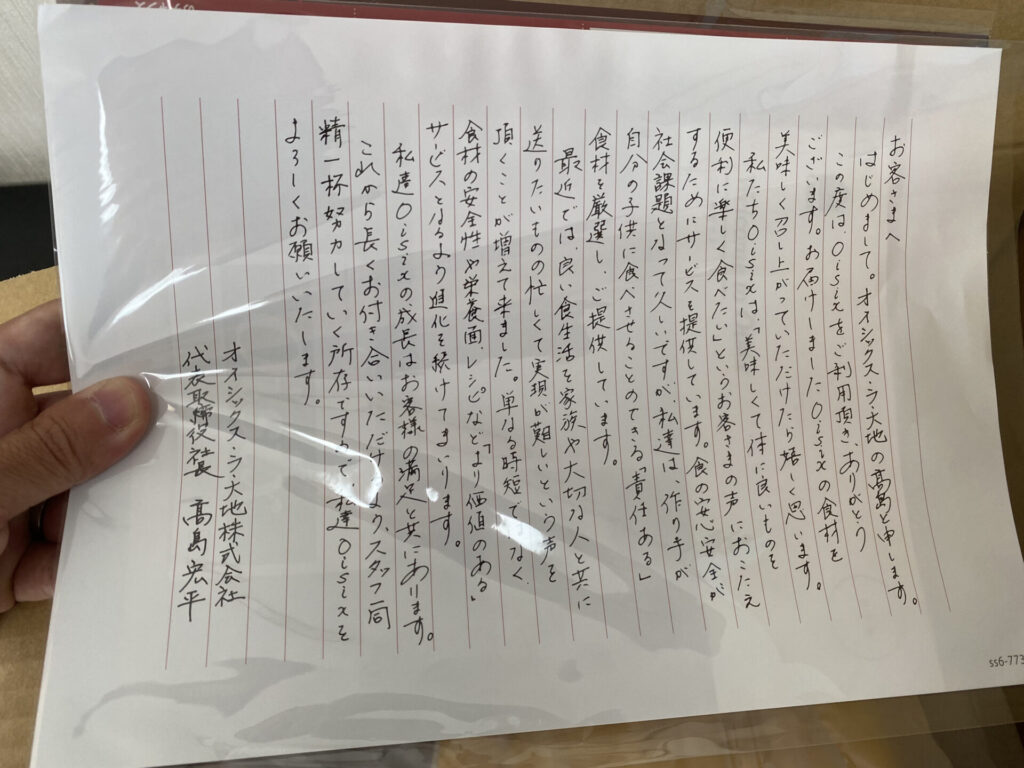 お客さまへ
はじめまして。オイシックス・ラ・大地の髙島と申します。
この度は、Oisixをご利用頂き、ありがとう
ございます。お届けしましたOisixの食材を
美味しく召し上がっていただけたら嬉しく思います。
私たちOisixは、「美味しくて体に良いものを
便利に楽しく食べたい」というお客さまの声におこたえ
するためにサービスを提供しています。食の安心、安全が
社会課題となって久しいですが、私達は、作り手が
自分の子供に食べさせることのできる「責任ある」
食材を厳選し、ご提供しています。
最近では、良い食生活を家族や大切な人と共に
送りたいものの忙しくて実現が難しいという声を
頂くことが増えて来ました。単なる時短でなく、
食材の安全性や栄養面、レシピなど、「より価値のある」
サービスとなるよう進化を続けてまいります。
私達Oisixの成長はお客様の満足と共にあります。
これから長くお付き合いいただけるよう、スタッフ一同
精一杯努力していく所存ですので、私達Oisixを
よろしくお願いいたします。
オイシックス・ラ・大地株式会社
代表取締役社長 髙島宏平
ss6-773